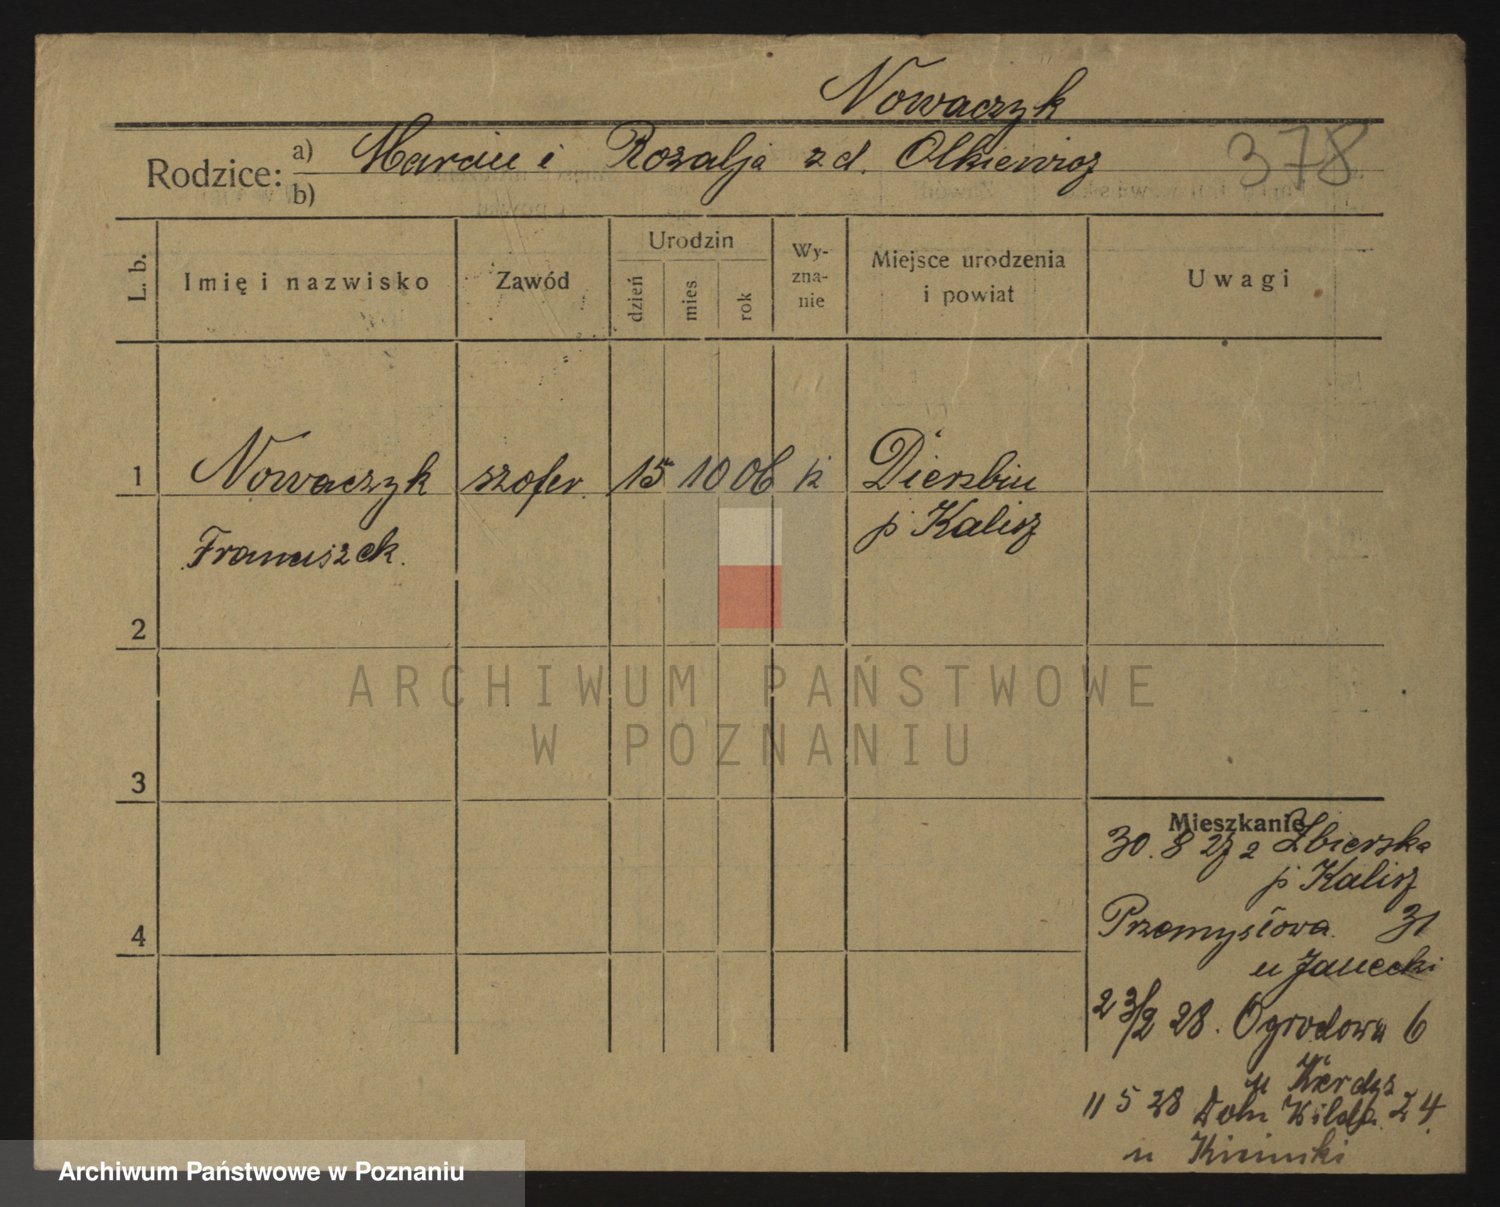 Nowaczyk
Rodzice: a) Marcin i Rozalja z d. Olkiewicz 378
b)
L. b. Imię i nazwisko Zawód Urodzin dzień mies. rok Wy-zna-nie Miejsce urodzenia i powiat Uwagi
1 Nowaczyk szofer. 15 10 06 k Dierzbin
Franciszek. p Kalisz
2
ARCHIWUM PAŃSTWOWE
W POZNANIU
3
Mieszkanie
30. 8 27 z Zbierska
p Kalisz
4 Przemysłowa 31
u Janecki
23/2 28. Ogrodowa 6
u
11 5 28 Doln Wilda 24.
u
Archiwum Państwowe w Poznaniu